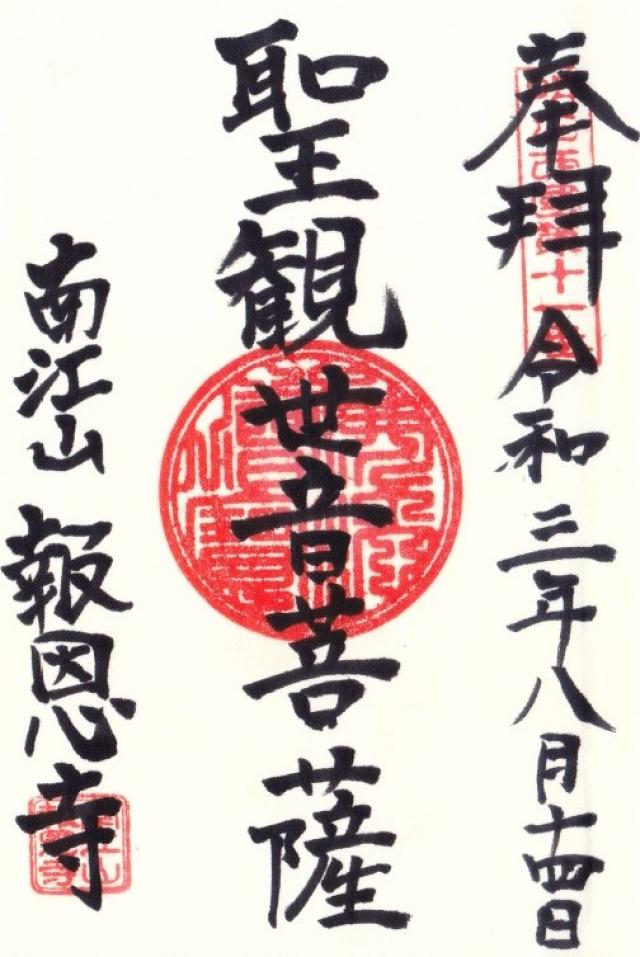 奉拝 令和三年八月十四日
聖観世音菩薩
南江山 報恩寺